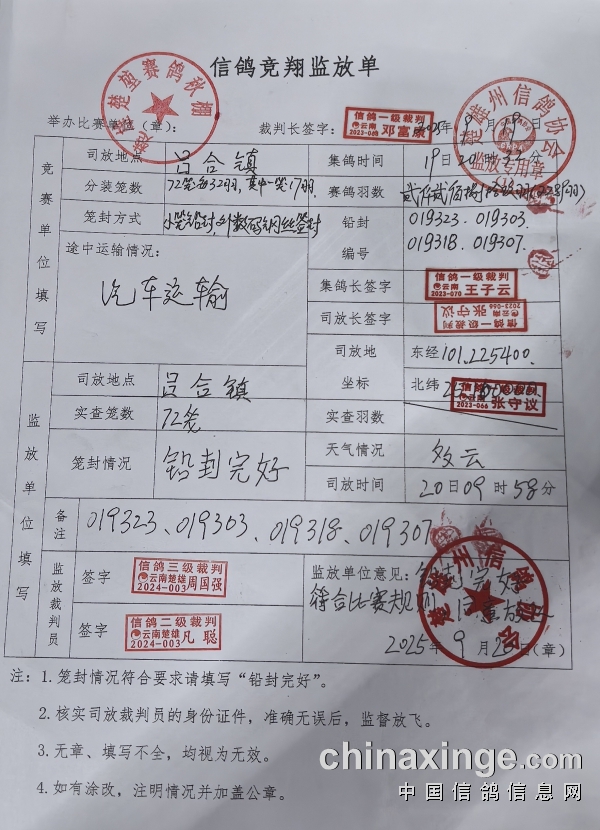 信鸽竞翔监放单
举办比赛单位（章）： 裁判长签字： 信鸽一级裁判 云南 2023-068 邓富康 2025年9月19日
楚雄州信鸽协会 监放专用章
竞赛单位填写
司放地点 吕合镇 集鸽时间 19日20时 分
分装笼数 72笼每32羽,其中一笼17羽. 赛鸽羽数
笼封方式 小笼铅封,外数码钢丝签封 铅封编号 019323. 019303.
019318. 019307.
途中运输情况： 汽车运输
集鸽长签字 信鸽一级裁判 云南 2023-070 王子云
司放长签字 信鸽一级裁判 云南 2023-066 张守议
司放地坐标 东经101.225400.
北纬 信鸽一级裁判 云南 2023-066 张守议
监放单位填写
司放地点 吕合镇
实查笼数 72笼 实查羽数
笼封情况 铅封完好 天气情况 多云
司放时间 20日09时58分
备注 019323、019303、019318、019307
监放裁判员
签字 信鸽三级裁判 云南楚雄 2024-003 周国强
签字 信鸽二级裁判 云南楚雄 2024-003 凡聪
监放单位意见： 铅封完好
符合比赛规则
楚雄州信鸽协会
2025年9月20日(章)
注：1.笼封情况符合要求请填写“铅封完好”。
2.核实司放裁判员的身份证件，准确无误后，监督放飞。
3.无章、填写不全，均视为无效。
4.如有涂改，注明情况并加盖公章。
chinaxinge.com
中国信鸽信息网